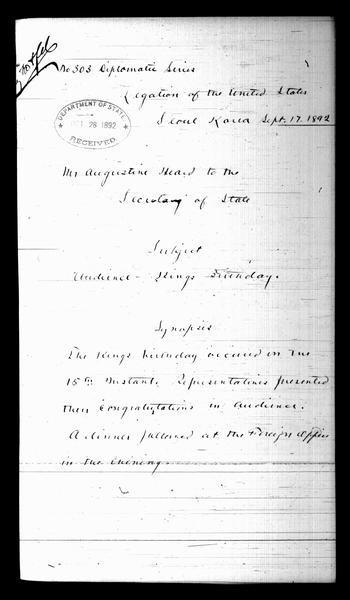 No 303 Diplomatic Series
Legation of the United States
Seoul Korea Sept. 17. 1892
DEPARTMENT OF STATE
OCT 28 1892
RECEIVED
Mr Augustine Heard to the
Secretary of State
Subject
Audience - Kings Birthday.
Synopsis
The Kings birthday occured on the
15th Instant. Representatives presented
their Congratulations in Audience.
A dinner followed at the Foreign Office
in the evening.